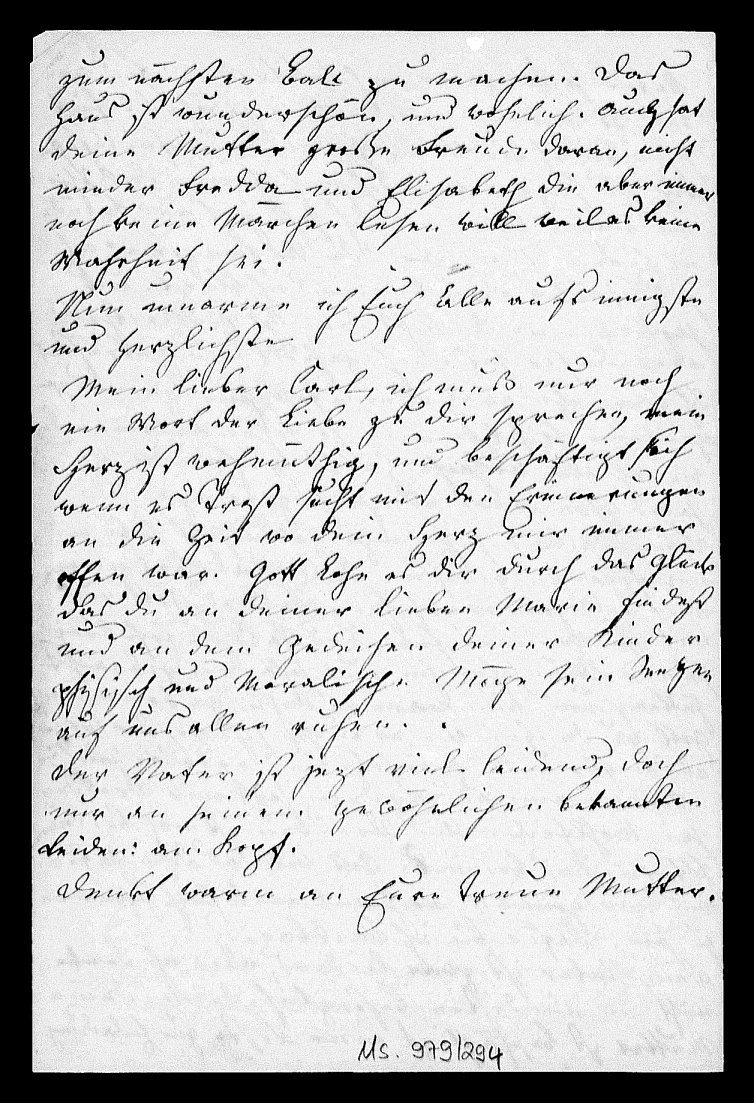 zum nächsten Ball zu machen. Das
Haus ist wunderschön, und wohnlich. Auch hat
deine Mutter grosse Freude daran, nicht
minder Fredda und Elisabeth die aber immer
noch keine Märchen lesen will weil es keine
Wahrheit sei.
Nun umarme ich Euch Alle aufs innigste
und herzlichste
Mein lieber Carl, ich muss nur noch
ein Wort der Liebe zu dir sprechen, mein
Herz ist wehmüthig, und beschäftigt sich
wenn es Trost sucht mit den Erinnerungen
an die Zeit wo dein Herz mir immer
offen war. Gott lohne es dir durch das Glück
das du an deiner lieben Marie findest
und an dem Gedeihen deiner Kinder
physisch und Moralisch. Möge sein Seegen
auf uns allen ruhen.
Der Vater ist jezt viel leidend, doch
nur an seinem gewöhnlichen bekannten
Leiden: am Kopf.
Denkt warm an Eure treue Mutter.
Ms. 979/294